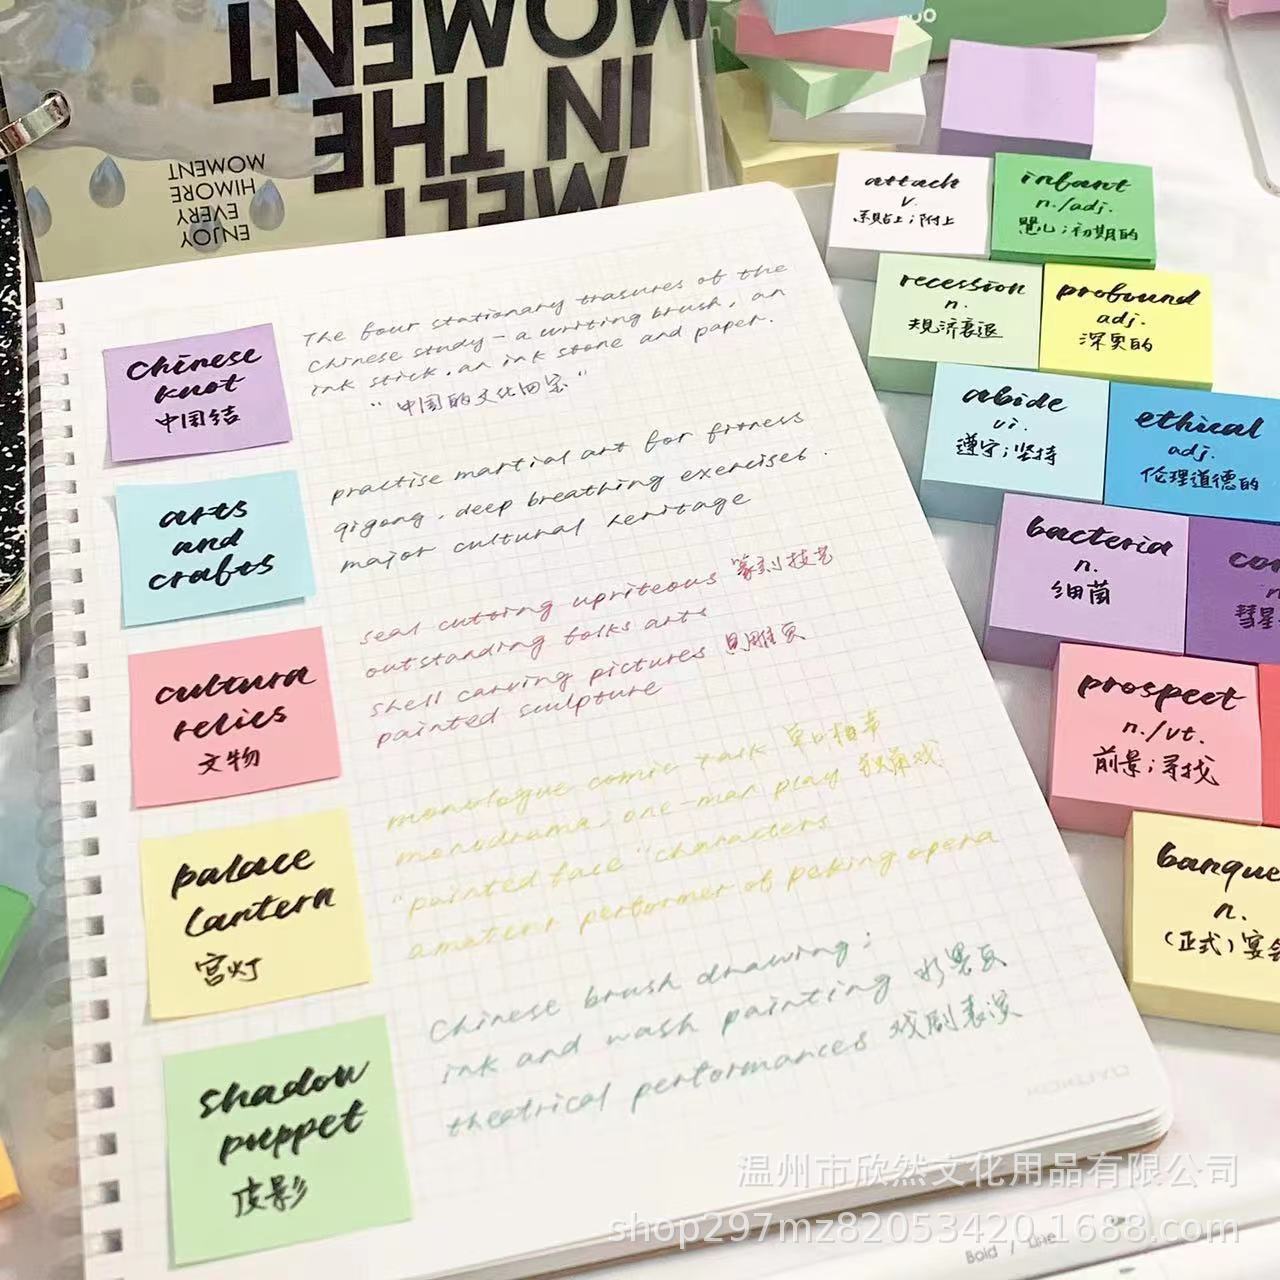 MELT
IN THE
MOMENT
ENJOY
EVERY
HIMORE
MOMENT
chinese
knot
中国结
The four stationary trasures of the
Chinese study - a writing brush, an
ink stick, an ink stone and paper.
" 中国的文化四宝 "
arts
and
crafts
practise martial art for fitness
qigong, deep breathing exercises.
major cultural heritage
cultura
relics
文物
seal cutting 篆刻技艺
outstanding folks arts
shell carving pictures 贝雕画
painted sculpture
palace
lantern
宫灯
monologue comic talk 单口相声
monodrama, one-man play 独角戏
"painted face" characters
amateur performer of peking opera
shadow
puppet
皮影
Chinese brush drawing:
ink and wash painting 水墨画
theatrical performances 戏剧表演
KOKUYO
attach
v.
系贴上;附上
infant
n./adj.
婴儿;初期的
recession
n.
衰退
profound
adj.
深奥的
abide
vi.
遵守;坚持
ethical
adj.
伦理道德的
bacteria
n.
细菌
co
彗星
prospect
n./vt.
前景;寻找
banque
n.
(正式)宴会
温州市欣然文化用品有限公司
shop297mz82053420.1688.com
Bold / Line